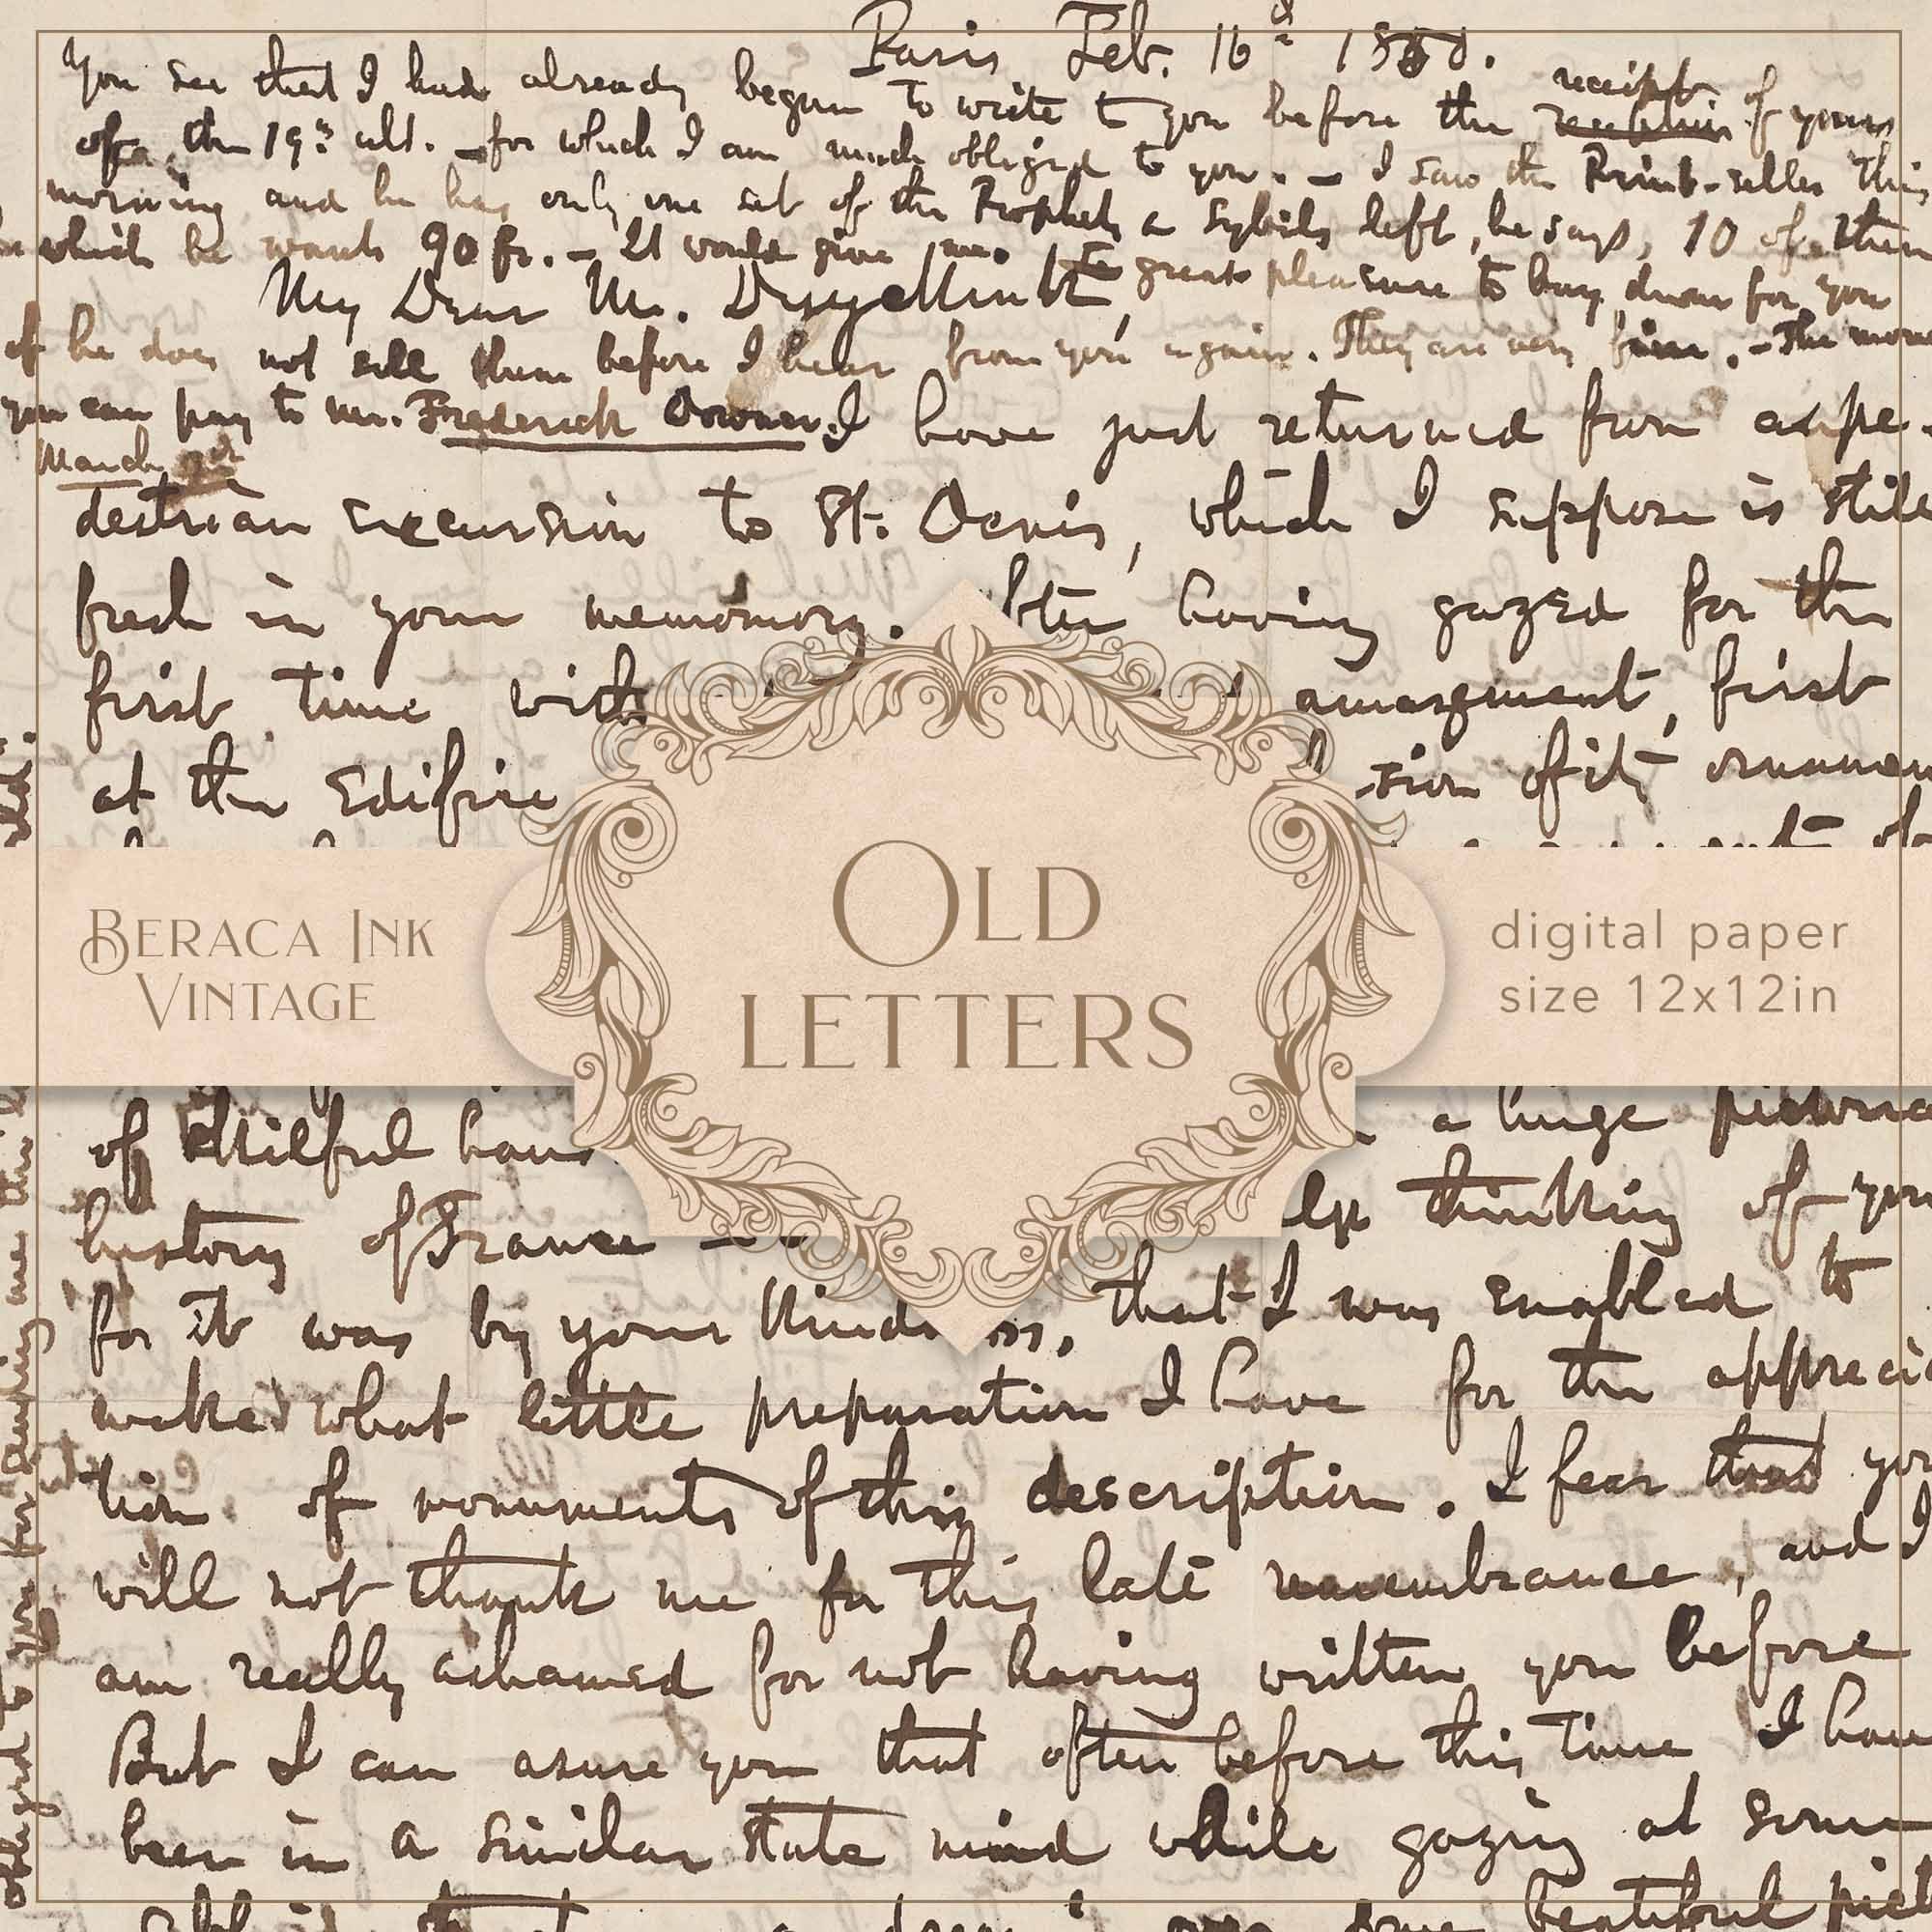 Paris Feb. 16
You see that I had already begun to write to you before the receipt of yours
of the 19th ult. - for which I am much obliged to you. - I saw the Print-seller this
morning and he has only one set of the Prophets & Sybils left, he says, 10 of them
which he wants 90 fr. - It would give me great pleasure to buy them for you
My Dear Mr.
if he does not sell them before I hear from you again. They are very fine. - The money
you can pay to Mr. Frederick
I have just returned from a pe-
March
destrian excursion to St. Denis, which I suppose is still
fresh in your memomory. having gazed for the
first time with amazement, first
at the Edifice sion of its
OLD
LETTERS
BERACA INK
VINTAGE
digital paper
size 12x12in
of skilful a huge
history of France - thinking of you
for it was by your that I was enabled to
make what little preparation I have for the apprecia
tion of monuments of this description. I fear that you
will not thank me for this late remembrance, and I
am really ashamed for not having written you before
But I can asure you that often before this time I have
been in a similar state mind while gazing at some
beautiful
obliged to you for sending me this